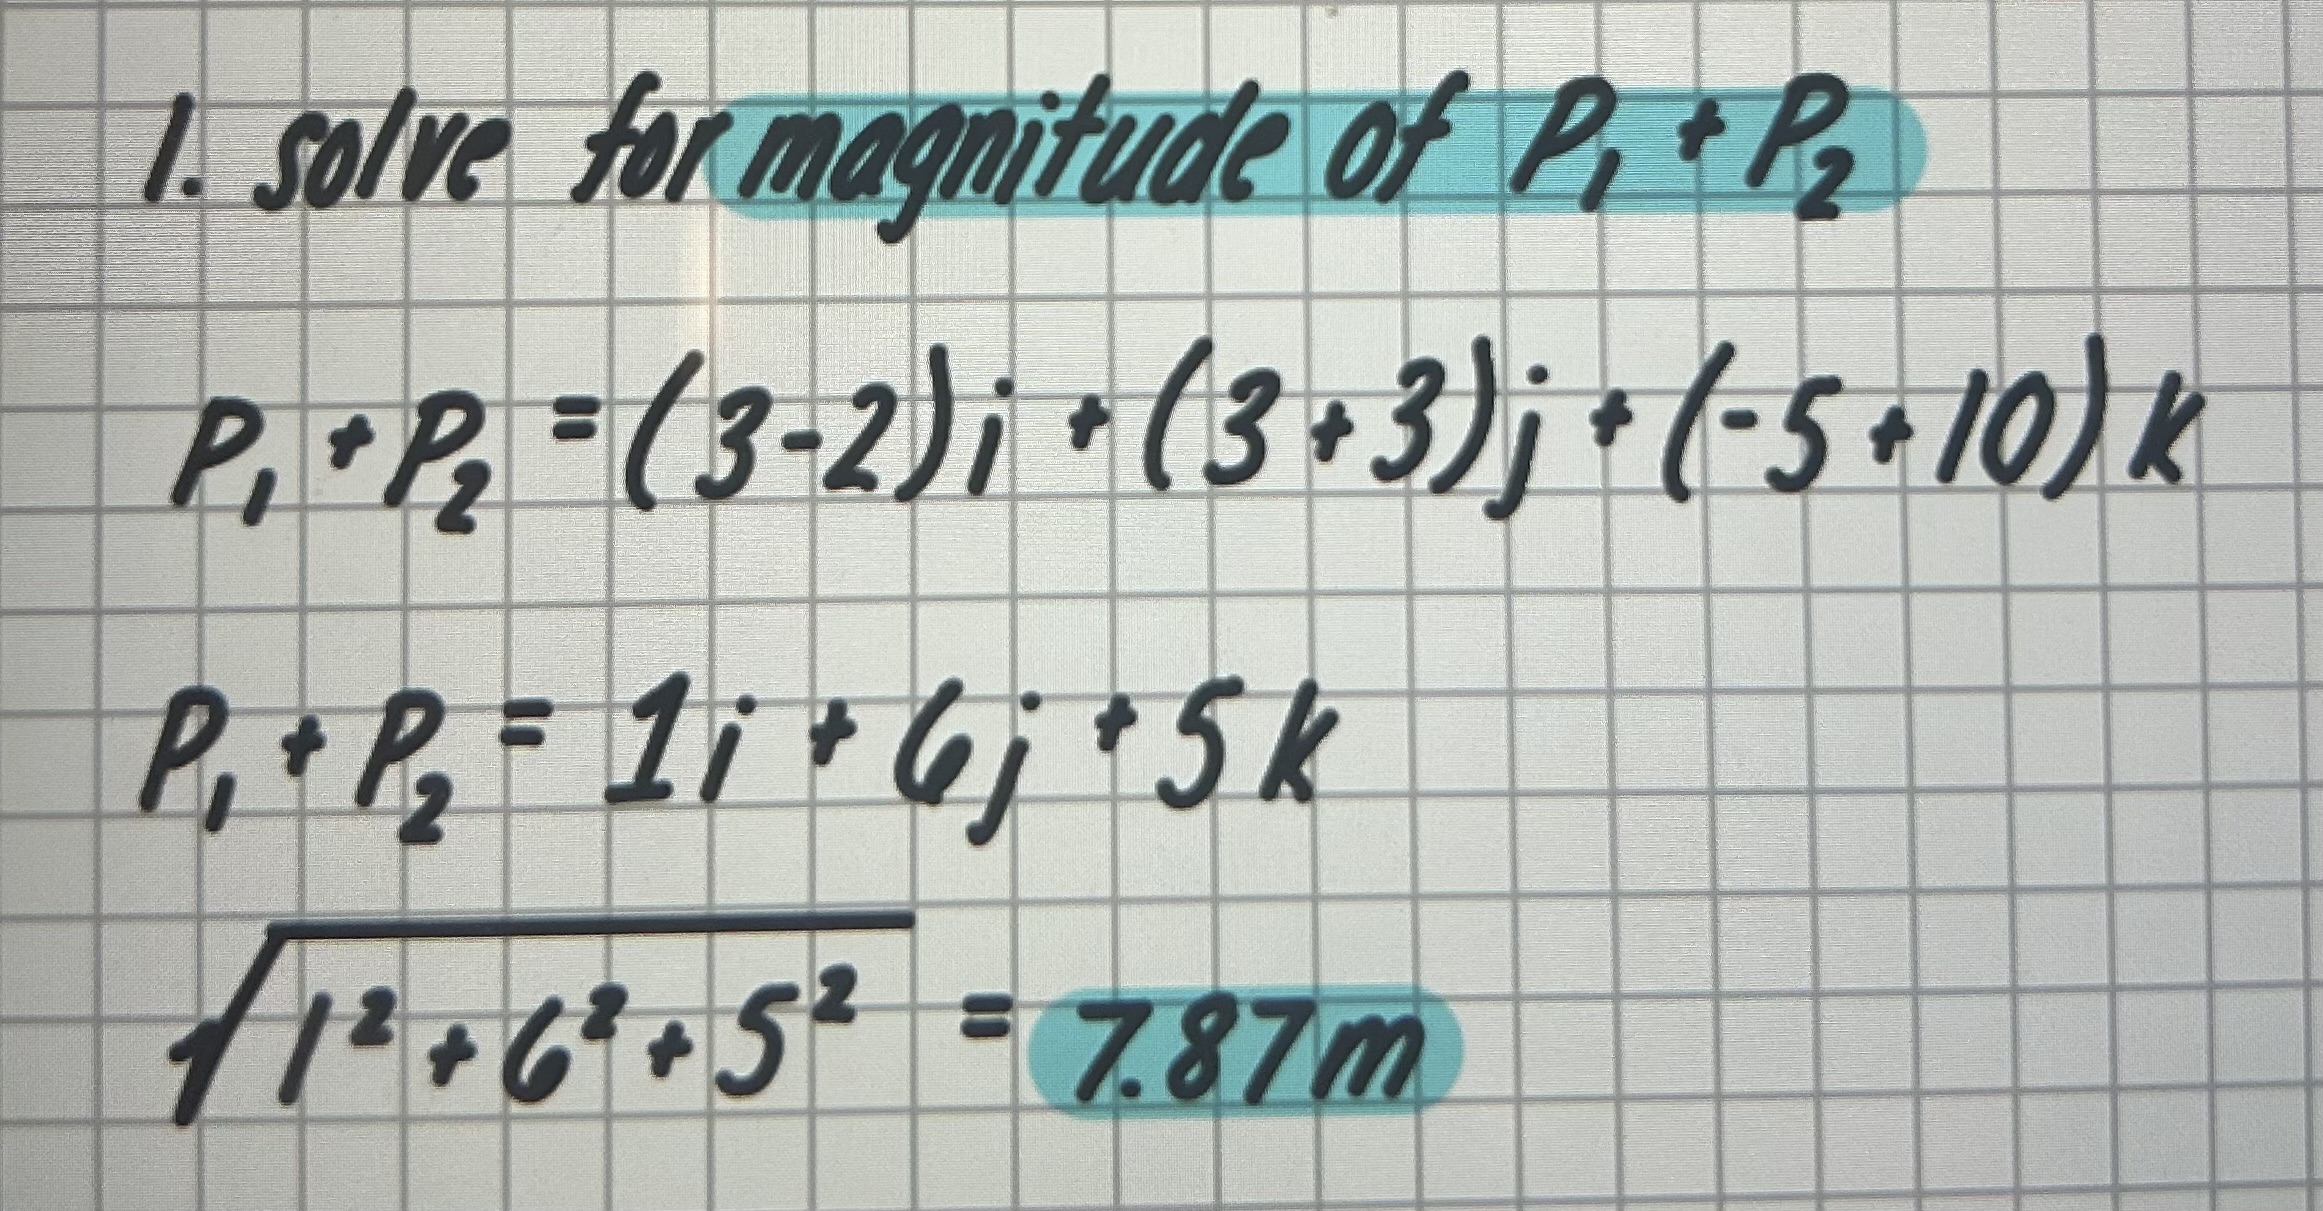 1. solve for magnitude of P₁ + P₂
P₁ + P₂ = (3-2)i + (3+3)j + (-5+10)k
P₁ + P₂ = 1i + 6j + 5k
√1² + 6² + 5² = 7.87m